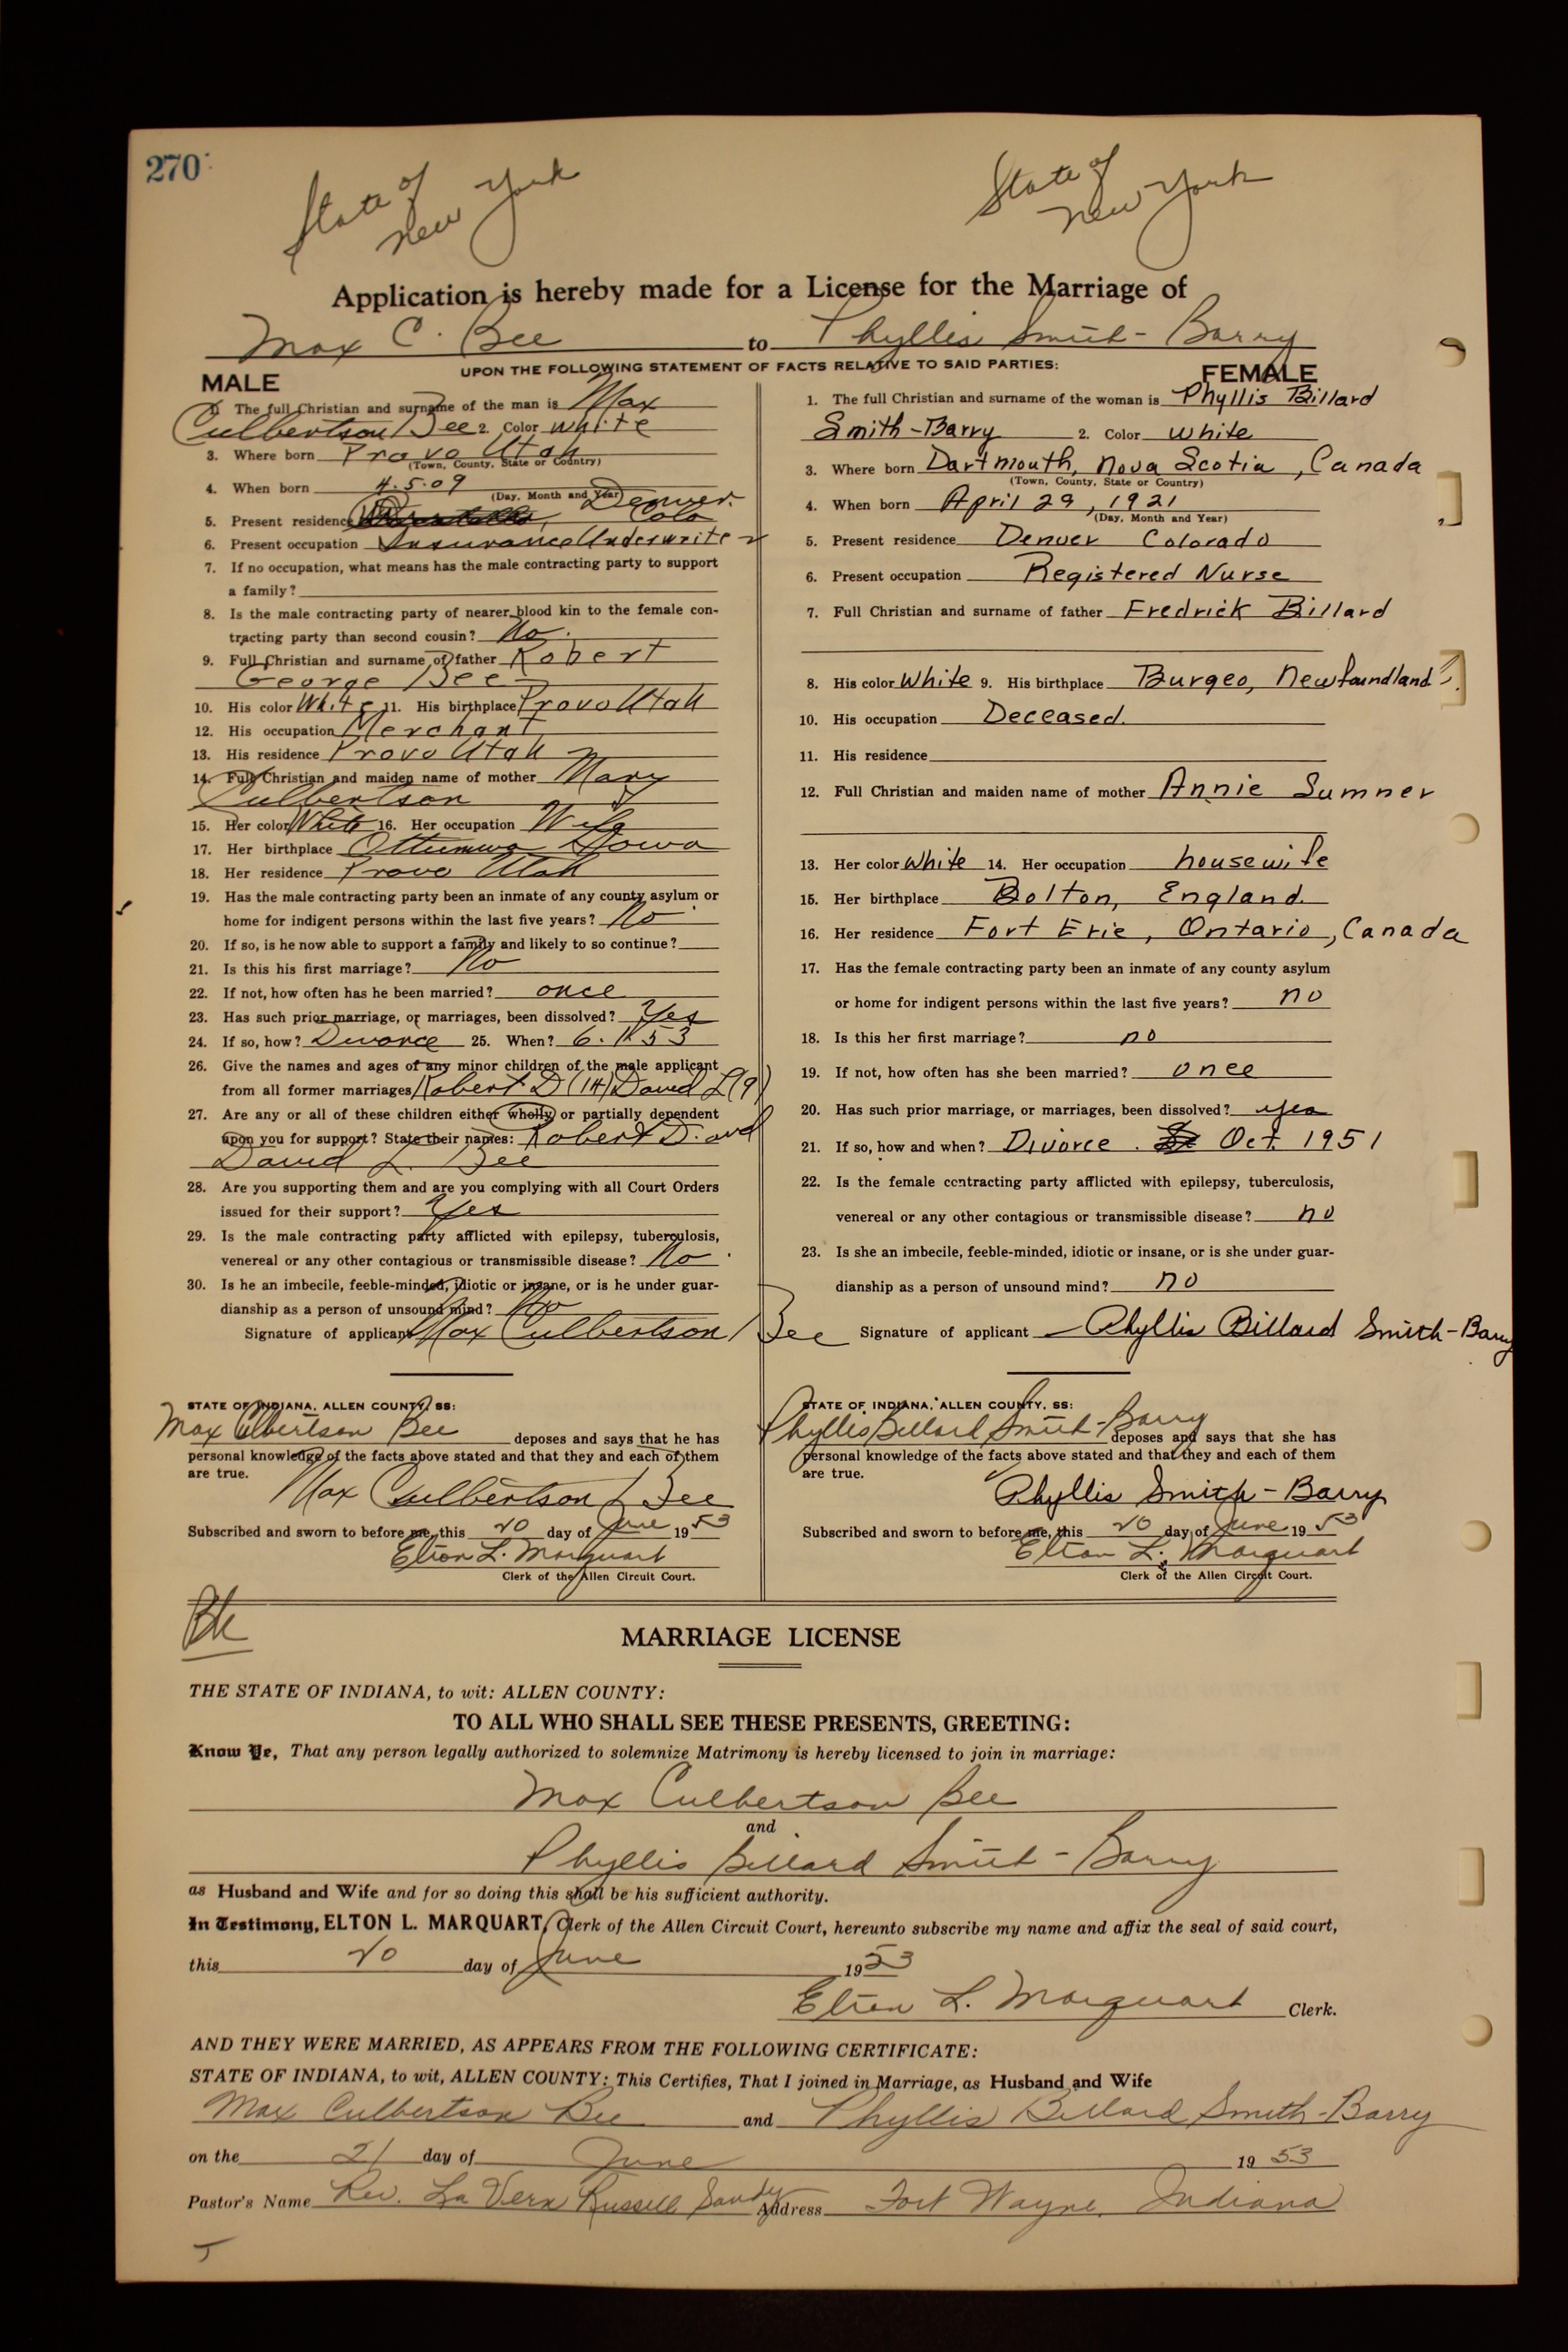 270
State of New York
State of New York
Application is hereby made for a License for the Marriage of
Max C. Bee to Phyllis Smith-Barry
UPON THE FOLLOWING STATEMENT OF FACTS RELATIVE TO SAID PARTIES:
MALE
1. The full Christian and surname of the man is Max
Culbertson Bee 2. Color White
3. Where born Provo Utah
(Town, County, State or Country)
4. When born 4.5.09
(Day, Month and Year)
5. Present residence Denver. Colo
6. Present occupation Insurance Underwriter
7. If no occupation, what means has the male contracting party to support
a family?
8. Is the male contracting party of nearer blood kin to the female con-
tracting party than second cousin? No.
9. Full Christian and surname of father Robert
George Bee
10. His color White 11. His birthplace Provo Utah
12. His occupation Merchant
13. His residence Provo Utah
14. Full Christian and maiden name of mother Mary
Culbertson
15. Her color White 16. Her occupation Wife
17. Her birthplace Ottumwa Iowa
18. Her residence Provo Utah
19. Has the male contracting party been an inmate of any county asylum or
home for indigent persons within the last five years? No
20. If so, is he now able to support a family and likely to so continue?
21. Is this his first marriage? No
22. If not, how often has he been married? once
23. Has such prior marriage, or marriages, been dissolved? Yes
24. If so, how? Divorce 25. When? 6. 1 53
26. Give the names and ages of any minor children of the male applicant
from all former marriages Robert D (14) David L (9)
27. Are any or all of these children either wholly or partially dependent
upon you for support? State their names: Robert D. and
David L. Bee
28. Are you supporting them and are you complying with all Court Orders
issued for their support? Yes
29. Is the male contracting party afflicted with epilepsy, tuberculosis,
venereal or any other contagious or transmissible disease? No
30. Is he an imbecile, feeble-minded, idiotic or insane, or is he under guar-
dianship as a person of unsound mind? No
Signature of applicant Max Culbertson Bee
STATE OF INDIANA, ALLEN COUNTY, SS:
Max Culbertson Bee deposes and says that he has
personal knowledge of the facts above stated and that they and each of them
are true.
Max Culbertson Bee
Subscribed and sworn to before me, this 20 day of June 1953
Elton L. Marquart
Clerk of the Allen Circuit Court.
FEMALE
1. The full Christian and surname of the woman is Phyllis Billard
Smith-Barry 2. Color White
3. Where born Dartmouth, Nova Scotia, Canada
(Town, County, State or Country)
4. When born April 29, 1921
(Day, Month and Year)
5. Present residence Denver Colorado
6. Present occupation Registered Nurse
7. Full Christian and surname of father Fredrick Billard
8. His color White 9. His birthplace Burgeo, Newfoundland
10. His occupation Deceased.
11. His residence
12. Full Christian and maiden name of mother Annie Sumner
13. Her color White 14. Her occupation housewife
15. Her birthplace Bolton, England.
16. Her residence Fort Erie, Ontario, Canada
17. Has the female contracting party been an inmate of any county asylum
or home for indigent persons within the last five years? no
18. Is this her first marriage? no
19. If not, how often has she been married? once
20. Has such prior marriage, or marriages, been dissolved? yes
21. If so, how and when? Divorce. Oct. 1951
22. Is the female contracting party afflicted with epilepsy, tuberculosis,
venereal or any other contagious or transmissible disease? no
23. Is she an imbecile, feeble-minded, idiotic or insane, or is she under guar-
dianship as a person of unsound mind? no
Signature of applicant Phyllis Billard Smith-Barry
STATE OF INDIANA, ALLEN COUNTY, SS:
Phyllis Billard Smith-Barry deposes and says that she has
personal knowledge of the facts above stated and that they and each of them
are true.
Phyllis Smith-Barry
Subscribed and sworn to before me, this 20 day of June 1953
Elton L. Marquart
Clerk of the Allen Circuit Court.
MARRIAGE LICENSE
THE STATE OF INDIANA, to wit: ALLEN COUNTY:
TO ALL WHO SHALL SEE THESE PRESENTS, GREETING:
Know Ye, That any person legally authorized to solemnize Matrimony is hereby licensed to join in marriage:
Max Culbertson Bee
and
Phyllis Billard Smith-Barry
as Husband and Wife and for so doing this shall be his sufficient authority.
In Testimony, ELTON L. MARQUART, Clerk of the Allen Circuit Court, hereunto subscribe my name and affix the seal of said court,
this 20 day of June 1953
Elton L. Marquart Clerk.
AND THEY WERE MARRIED, AS APPEARS FROM THE FOLLOWING CERTIFICATE:
STATE OF INDIANA, to wit, ALLEN COUNTY: This Certifies, That I joined in Marriage, as Husband and Wife
Max Culbertson Bee and Phyllis Billard Smith-Barry
on the 21 day of June 1953
Pastor's Name Rev. La Vern Russell Sandy Address Fort Wayne, Indiana